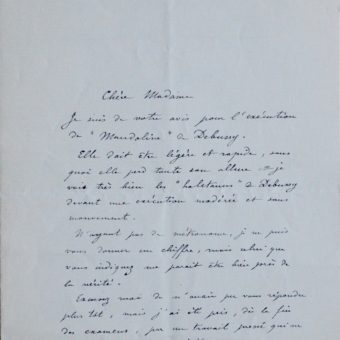 Chère Madame
Je suis de votre avis pour l'exécution
de "Mandoline" de Debussy.
Elle doit être légère et rapide, sans
quoi elle perd toute son allure je
vois très bien les de Debussy
devant une exécution modérée et sans
mouvement.
N'ayant pas de métronome, je ne puis
vous donner un chiffre, mais celui que
vous indiquez me parait être bien près de
la vérité.
Excusez moi de n'avoir pu vous répondre
plus tôt, mais j'ai été pris, dès la fin
des examens, par un travail pressé qui ne